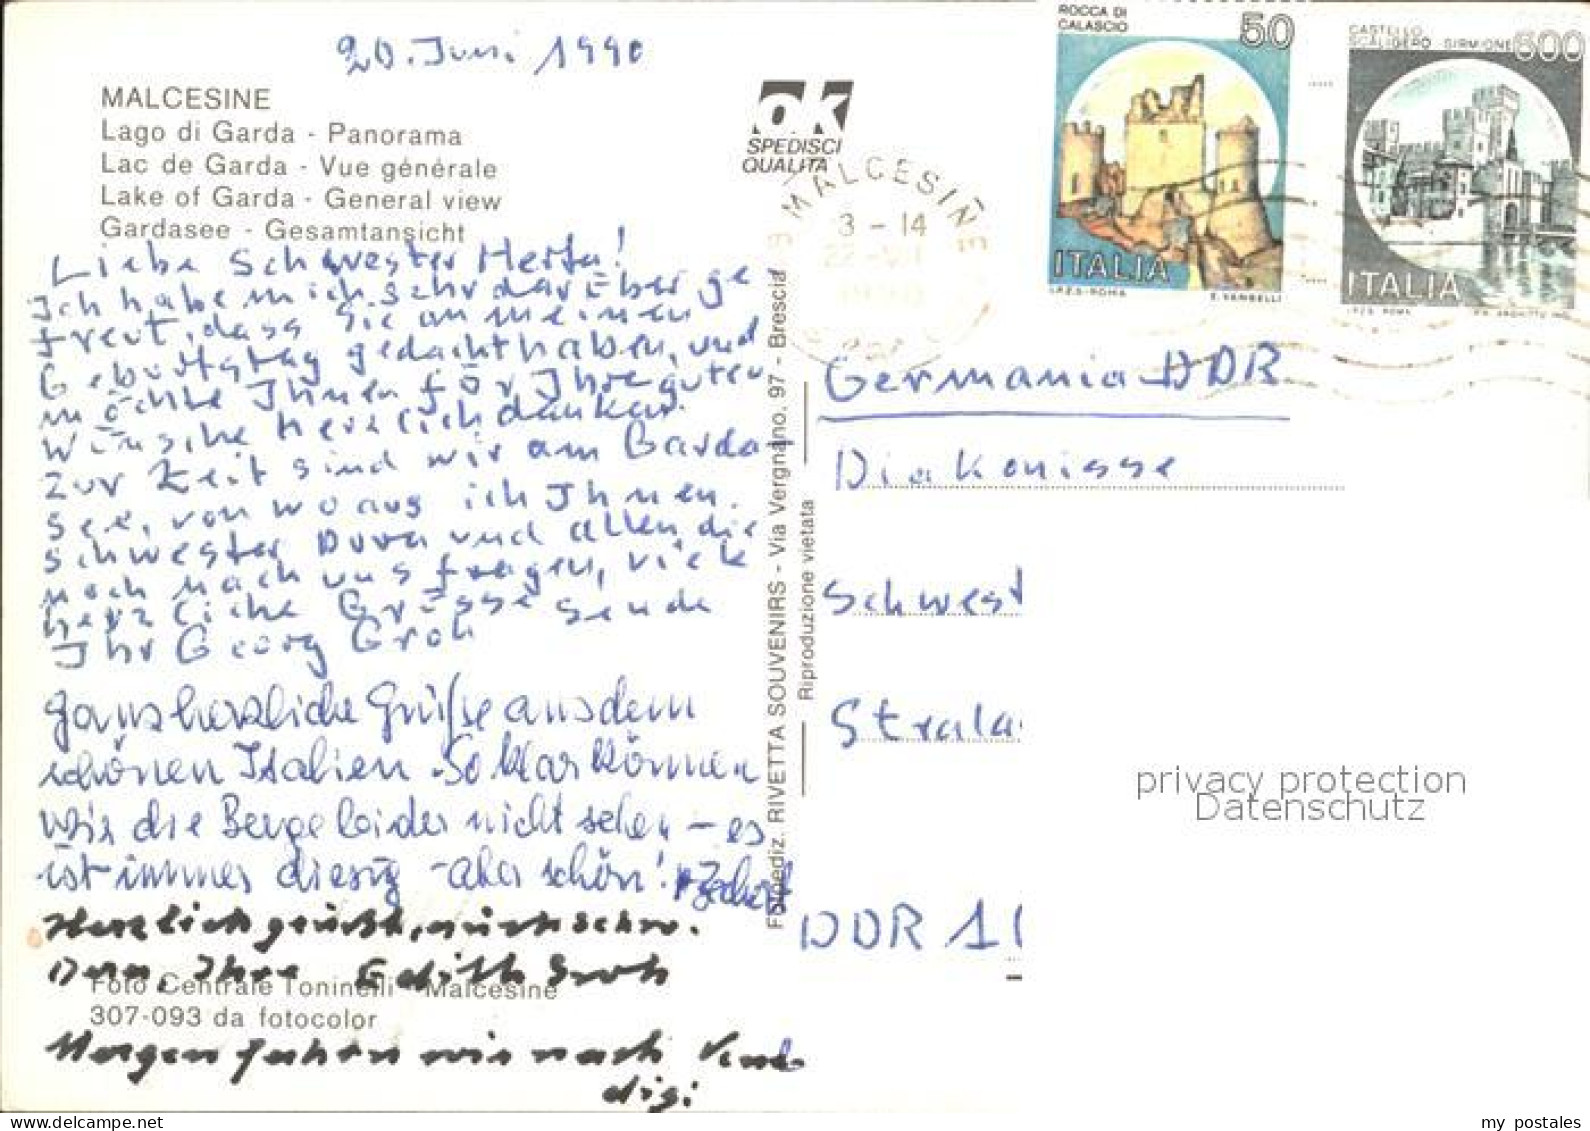 20. Juni 1990
MALCESINE
Lago di Garda - Panorama
Lac de Garda - Vue générale
Lake of Garda - General view
Gardasee - Gesamtansicht
Liebe Schwester Herta!
Ich habe mich sehr darüber ge
freut, dass Sie an meinen
Geburtstag gedacht haben, und
möchte Ihnen für Ihre guten
Wünsche herzlich danken.
Zur Zeit sind wir am Garda-
see, von wo aus ich Ihnen,
Schwester Dora und allen die
noch nach uns fragen, viele
herzliche Grüsse sende
Ihr Georg Groh
ganz herzliche Grüße aus dem
schönen Italien. So klar können
wir die Berge leider nicht sehen - es
ist immer diesig - aber schön!
Herzlich grüßt, auch Schw.
Dora, Ihre Edith Groh
Foto Centrale Toninelli - Malcesine
307-093 da fotocolor
Morgen fahren wir nach Vene
digi
OK
SPEDISCI
QUALITA
Fotoediz. RIVETTA SOUVENIRS - Via Vergnano, 97 - Brescia
Riproduzione vietata
MALCESINE
3 - 14
ROCCA DI
CALASCIO
50
ITALIA
I.P.Z.S. - ROMA
E. VANGELLI
CASTELLO
SCALIGERO - SIRMIONE
600
ITALIA
I.P.Z.S. ROMA
Germania DDR
Diakonisse
Schwest
Strala
DDR 1
privacy protection
Datenschutz
my postales